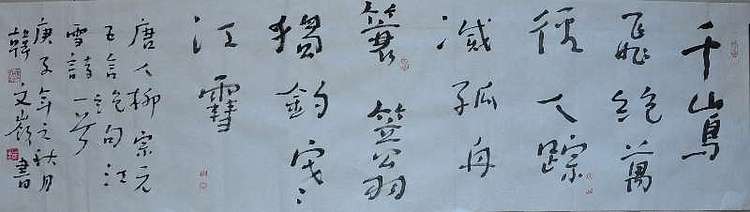 千山鳥
飛絕萬
徑人踪
滅孤舟
蓑笠翁
獨釣寒
江雪
唐人柳宗元
五言絕句江
雪詩一首
庚子年之秋月
韓文嶺書